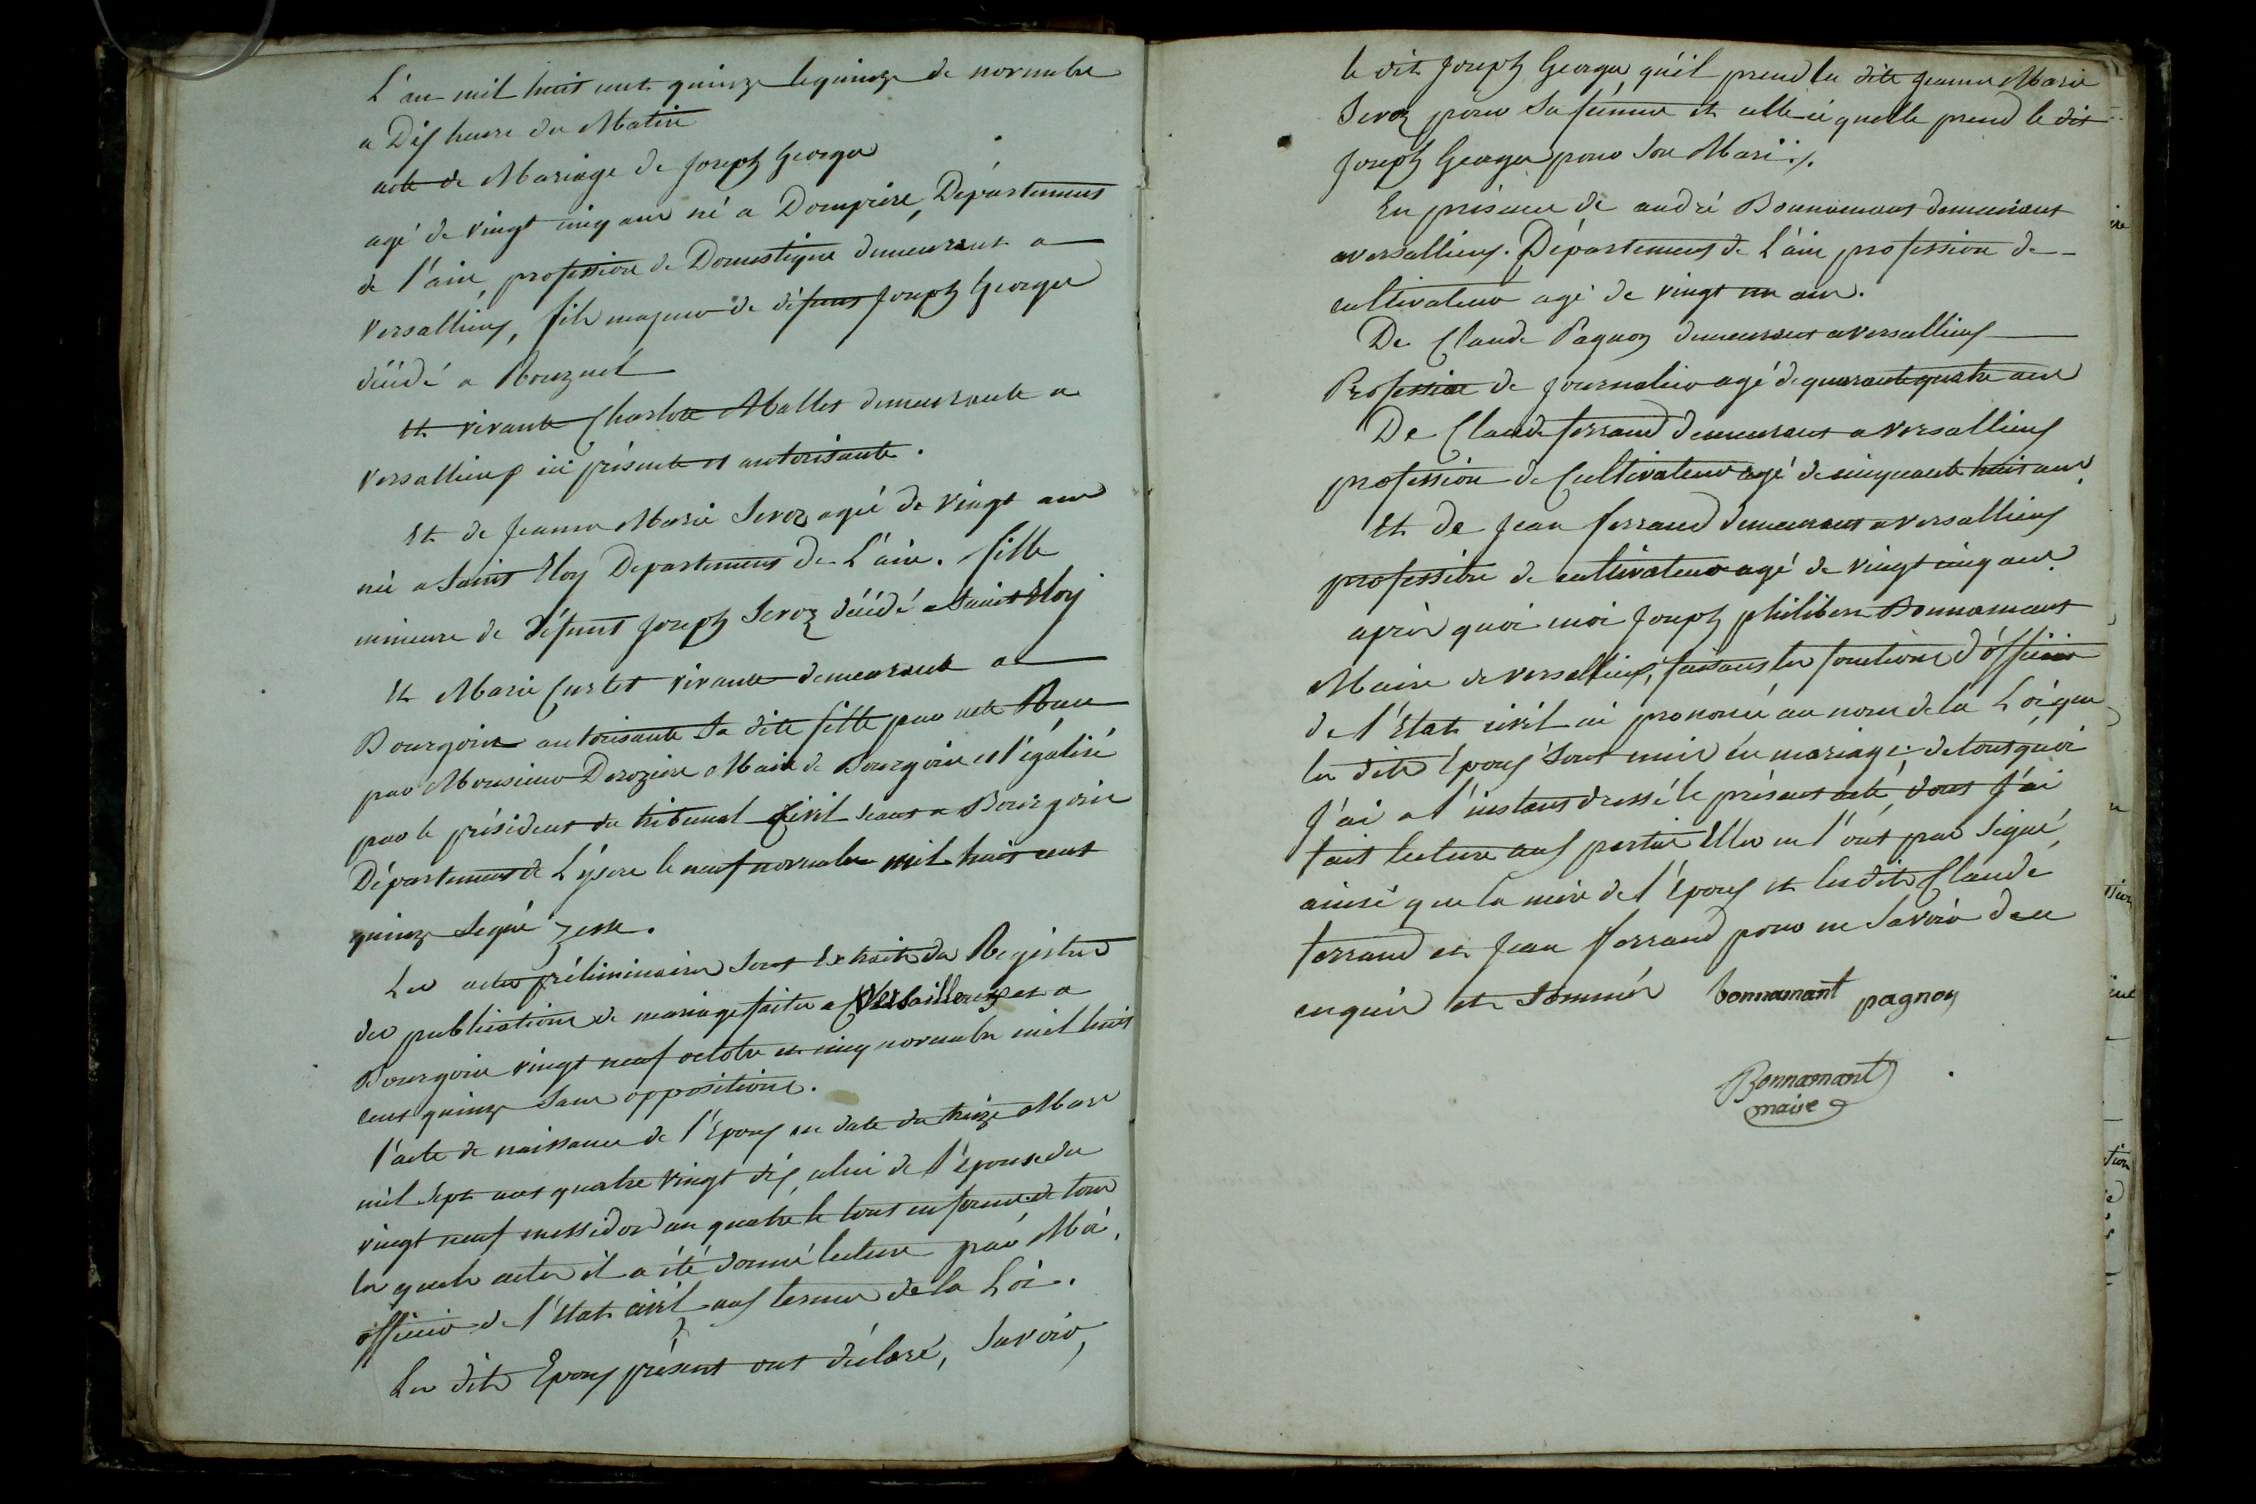 L'an mil huit cent quinze le quinze de novembre
a Dix heures du Matin
acte de Mariage de Joseph Georges
agé de vingt cinq ans né a Dompiere, Departement
de l'ain, profession de Domestique demeurant a
Versallieux, fils majeur de défunt Joseph Georges
décédé a
et vivante Charlotte Mallet demeurante a
Versallieux ici présente et autorisante.
Et de Jeanne Marie Servoz agée de vingt ans
née a Saint Eloy Departement de L'ain. fille
mineure de défunt Joseph Servoz décédé a Saint Eloy
Et Marie Curtet vivante demeurant a
Bourgoin autorisante sa dite fille par acte Recu
par Monsieur Deroziere Maire de Bourgoin et légalisé
par le président du tribunal Civil seant a Bourgoin
Département de L'ysere le neuf novembre mil huit cent
quinze signé
Les actes préliminaires sont Extraits du Registre
des publications de mariage faites a Versailleux et a
Bourgoin vingt neuf octobre et cinq novembre mil huit
cent quinze sans oppositions.
l'acte de naissance de l'Epoux en date du treize Mars
mil sept cent quatre vingt dix, celui de l'épouse du
vingt neuf messidor an quatre le tout en forme. de tous
les quels actes il a été donné lecture par Moi,
officier de l'Etat civil aux termes de la Loi.
Les dits Epoux présent ont déclaré, Savoir,
le dit Joseph Georges, qu'il prend la dite Jeanne Marie
Servoz pour sa femme et celle ci quelle prend le dit
Joseph Georges pour son Mari./.
En présence de andré Bonnamant demeurant
a versallieux. Département de L'ain profession de
cultivateur agé de vingt un ans.
De Claude Pagnon demeurant a versallieux
Profession de journalier agé de quarante quatre ans
De Claude ferrand demeurant a versallieux
profession de Cultivateur agé de cinquante huit ans,
et de Jean ferrand demeurant a versallieux
profession de cultivateur agé de vingt cinq ans.
après quoi moi Joseph philibert Bonnamant
Maire de versallieux, faisant les fonctions d'officier
de l'Etat civil ai prononcé au nom de la Loi que
les dits Epoux sont unis en mariage; de tout quoi
J'ai a l'instant dressé le présent acte, dont J'ai
fait lecture aux parties Elles ne l'ont pas signé,
ainsi que la mère de l'Epoux et lesdits Claude
ferrand et Jean ferrand pour ne savoir de ce
enquis et sommés bonnamant pagnon
Bonnamant
maire